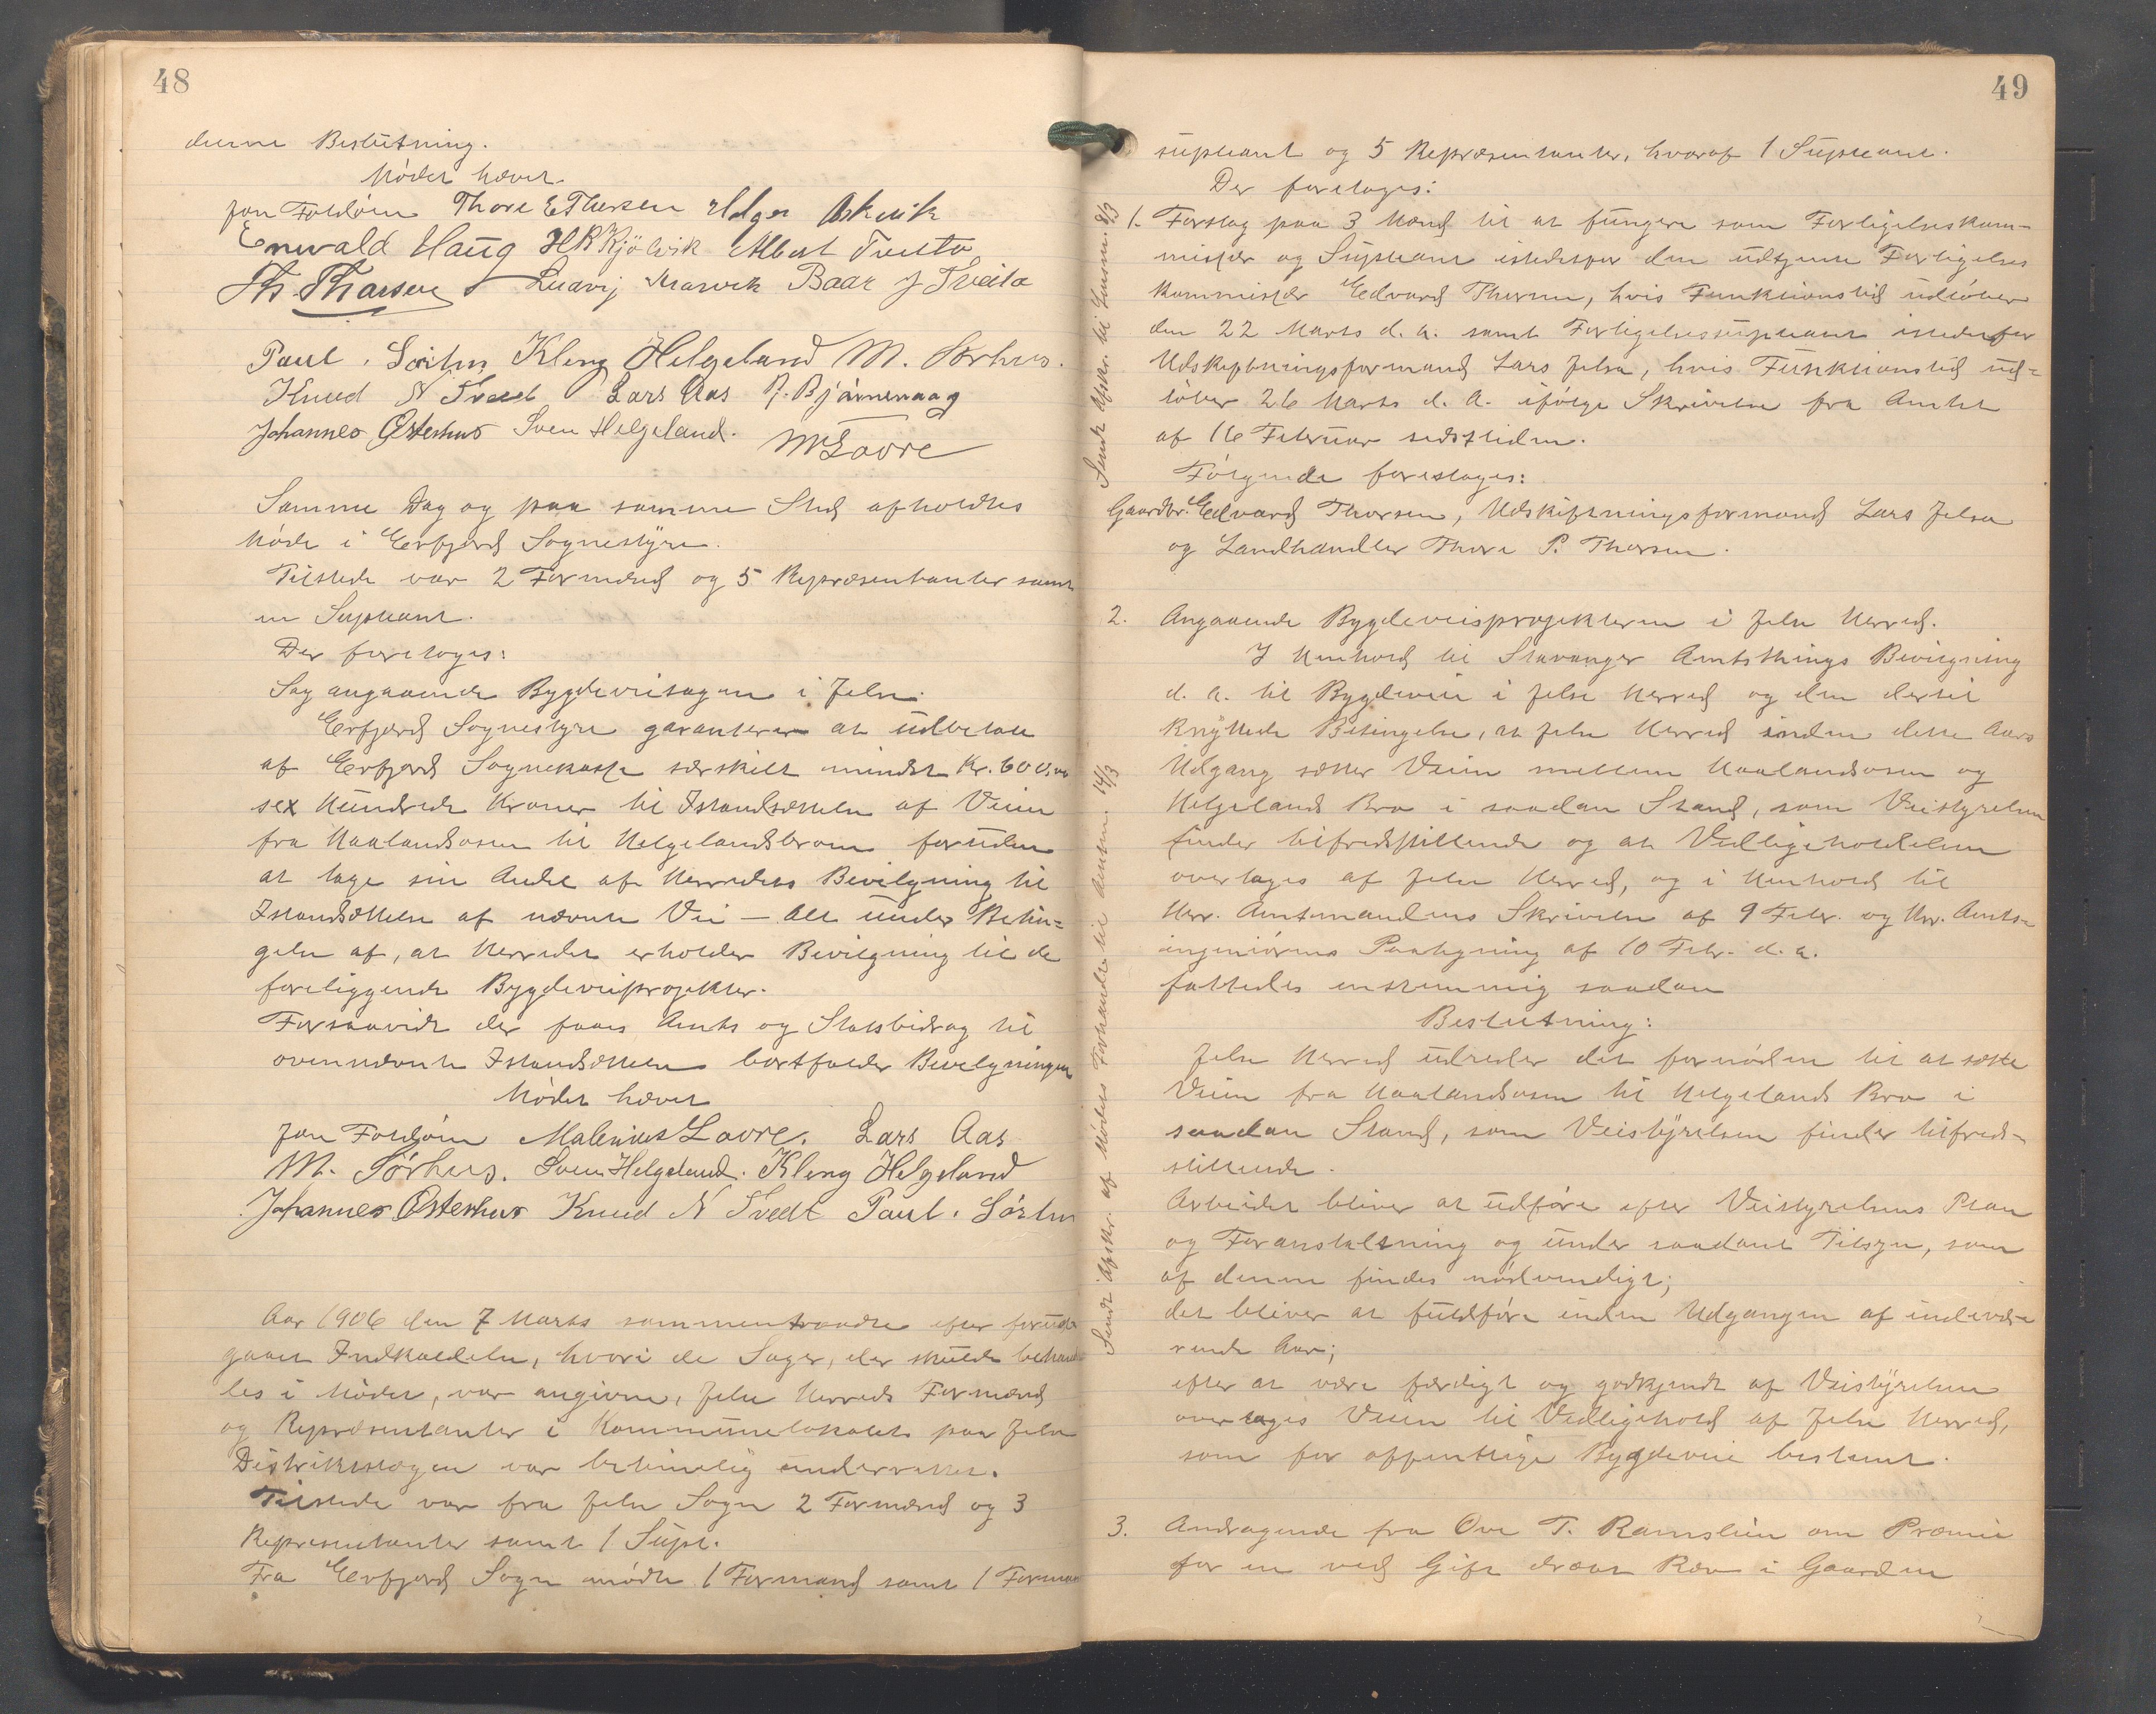 48
denne Beslutning.
Mødet hævet.
Jon Foldøen Thore E Thorsen Helger Askvik
Enevald Haug H R Kjölvik Albert Tveita
Th. Thorsen Ludvig Marvik Baar J Tveita
Paul . Sörhus Kleng Helgeland M. Sörhus.
Knud N Tvedt Lars Aas R. Bjørneraag
Johannes Østerhus Sven Helgeland. M Lovre
Samme Dag og paa samme Sted afholdtes
Møde i Erfjord Sognestyre.
Tilstede var 2 Formænd og 5 Repræsentanter samt
en Supleant.
Der foretoges:
Sag angaaende Bygdeveisagen i Jelse.
Erfjord Sognestyre garanterer at udbetale
af Erfjord Sognekasse særskilt mindst Kr. 600,00
sex Hundrede Kroner til Istandsættelse af Veien
fra Haalandsosen til Helgelandsbroen foruden
at tage sin Andel af Herredets Bevilgning til
Istandsættelse af nævnte Vei – Alt under Betin-
gelse af, at Herredet erholder Bevilgning til de
foreliggende Bygdeveiprojekter.
Forsaavidt der faaes Amts og Statsbidrag til
ovennævnte Istandsættelse bortfalder Bevilgningen
Mødet hævet
Jon Foldøen Malenius Lovre. Lars Aas
M. Sörhus. Sven Helgeland. Kleng Helgeland
Johannes Østerhus Knud N Tvedt Paul . Sörhus
Aar 1906 den 7 Marts sammentraadte efter forud
gaaet Indkaldelse, hvori de Sager, der skulde behand
les i Mødet, var angivne, Jelse Herreds Formænd
og Repræsentanter i Kommunelokalet paa Jelse
Distriktslægen var betimelig underrettet.
Tilstede var fra Jelse Sogn 2 Formænd og 3
Representanter samt 1 Supl.
Fra Erfjord Sogn mødte 1 Formand samt 1 Forman
49
supleant og 5 Repræsentanter, hvoraf 1 Supleant.
Der foretoges:
1. Forslag paa 3 Mænd til at fungere som Forligelseskom-
missær og Supleant istedetfor den udtjente Forligelses
kommissær Edvard Thorsen, hvis Funktionstid udløber
den 22 Marts d. A. samt Forligelsessupleant istedetfor
Udskiftningsformand Lars Jelsa, hvis Funktionstid ud-
løber 26 Marts d. A. ifølge Skrivelse fra Amtet
af 16 Februar sidstleden.
Følgende forestoges:
Gaardbr. Edvard Thorsen, Udskiftningsformand Lars Jelsa
og Landhandler Thore P. Thorsen.
2. Angaaende Bygdeveisprojekterne i Jelse Herred.
I Henhold til Stavanger Amtsthings Bevilgning
d. A. til Bygdeveie i Jelse Herred og den dertil
knyttede Betingelse, at Jelse Herred inden dette Aars
Udgang sætter Veien mellem Haalandsosen og
Helgelands Bro i saadan Stand, som Veistyrelsen
finder tilfredsstillende og at Vedligeholdelsen
overtages af Jelse Herred, og i Henhold til
Hrr. Amtmandens Skrivelse af 9 Febr. og Hrr. Amts-
ingeniørens Paategning af 10 Febr. d. A.
fattedes enstemmig saadan
Beslutning:
Jelse Herred udreder det fornødne til at sætte
Veien fra Haalandsosen til Helgelands Bro i
saadan Stand, som Veistyrelsen finder tilfreds-
stillende.
Arbeidet bliver at udføre efter Veistyrelsens Plan
og Foranstaltning og under saadant Tilsyn, som
af denne findes nødvendigt;
det bliver at fuldføre inden Udgangen af indevæ-
rende Aar;
efter at være færdigt og godkjendt af Veistyrelsen
overtages Veien til Vedligehold af Jelse Herred,
som for offentlige Bygdeveie bestemt.
3. Andragende fra Ove T. Ramslien om Præmie
for en ved Gift dræbt Ræv i Gaarden
Sendt Afskr. til Lensm. 8/3
Sendt Afskr. af Mødets Forhandl. til Amtm. 14/3